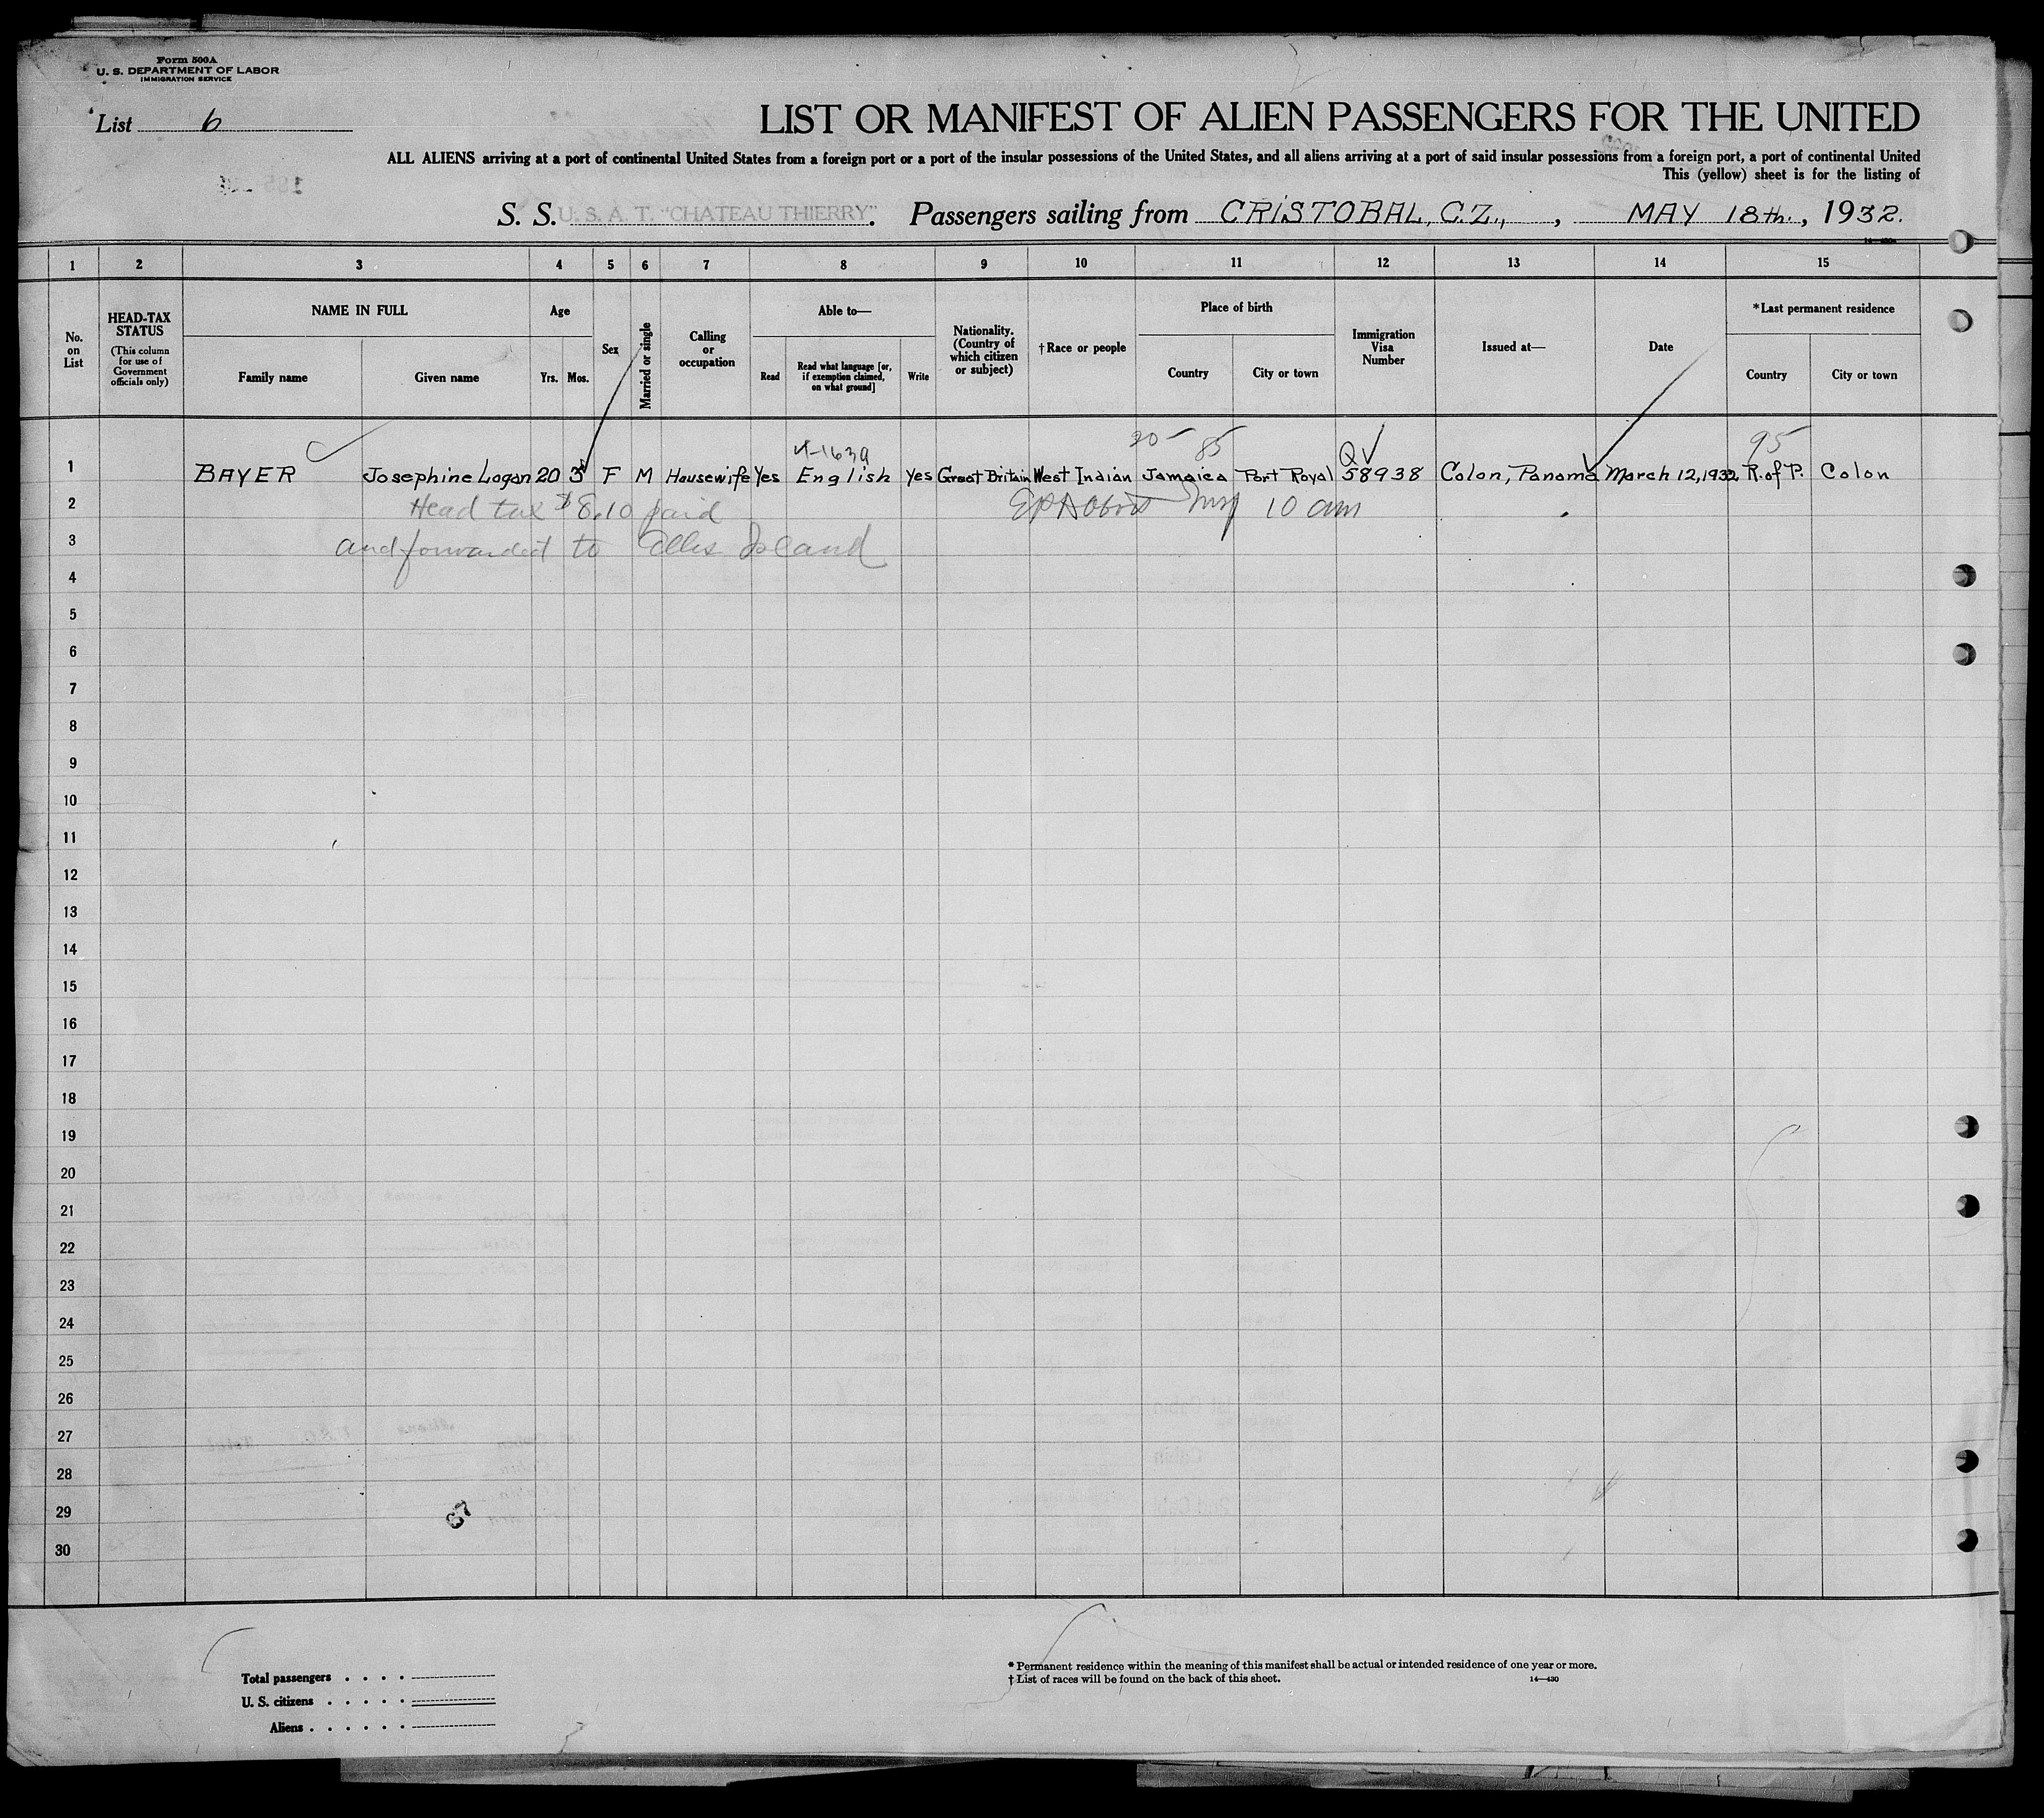 Form 500A
U. S. DEPARTMENT OF LABOR
IMMIGRATION SERVICE
List 6
LIST OR MANIFEST OF ALIEN PASSENGERS FOR THE UNITED
ALL ALIENS arriving at a port of continental United States from a foreign port or a port of the insular possessions of the United States, and all aliens arriving at a port of said insular possessions from a foreign port, a port of continental United
This (yellow) sheet is for the listing of
S. S. U. S. A. T. "CHATEAU THIERRY". Passengers sailing from CRISTOBAL, C.Z., , MAY 18th. , 1932.
1 2 3 4 5 6 7 8 9 10 11 12 13 14 15
No. on List
HEAD-TAX STATUS
(This column for use of Government officials only)
NAME IN FULL
Family name Given name
Age
Yrs. Mos.
Sex
Married or single
Calling or occupation
Able to—
Read
Read what language [or, if exemption claimed, on what ground]
Write
Nationality. (Country of which citizen or subject)
†Race or people
Place of birth
Country City or town
Immigration Visa Number
Issued at—
Date
*Last permanent residence
Country City or town
85 95
1 BAYER Josephine Logan 20 3 F M Housewife Yes English Yes Great Britain West Indian Jamaica Port Royal Q 58938 Colon, Panama March 12, 1932 R. of P. Colon
2 Head tax $8.10 paid 10 am
3 and forwarded to Ellis Island
4
5
6
7
8
9
10
11
12
13
14
15
16
17
18
19
20
21
22
23
24
25
26
27
28
29
30
67
Total passengers . . . .
U. S. citizens . . . . .
Aliens . . . . . .
* Permanent residence within the meaning of this manifest shall be actual or intended residence of one year or more.
† List of races will be found on the back of this sheet. 14—430